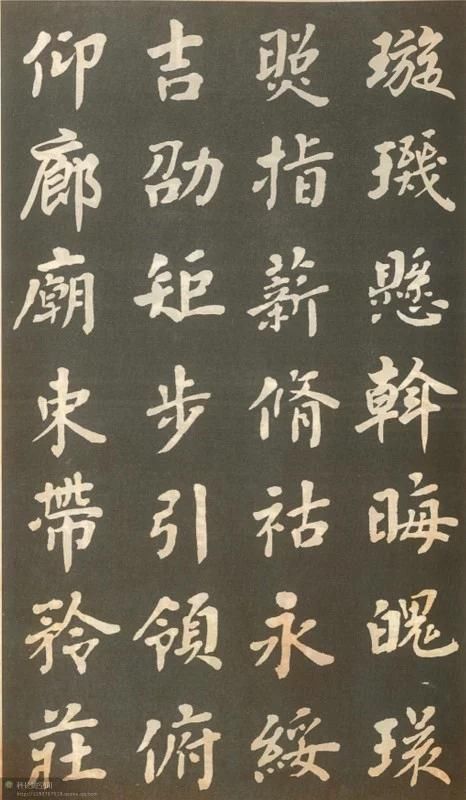 璇璣懸斡晦魄環
照指薪脩祜永綏
吉劭矩步引領俯
仰廊廟束帶矜莊